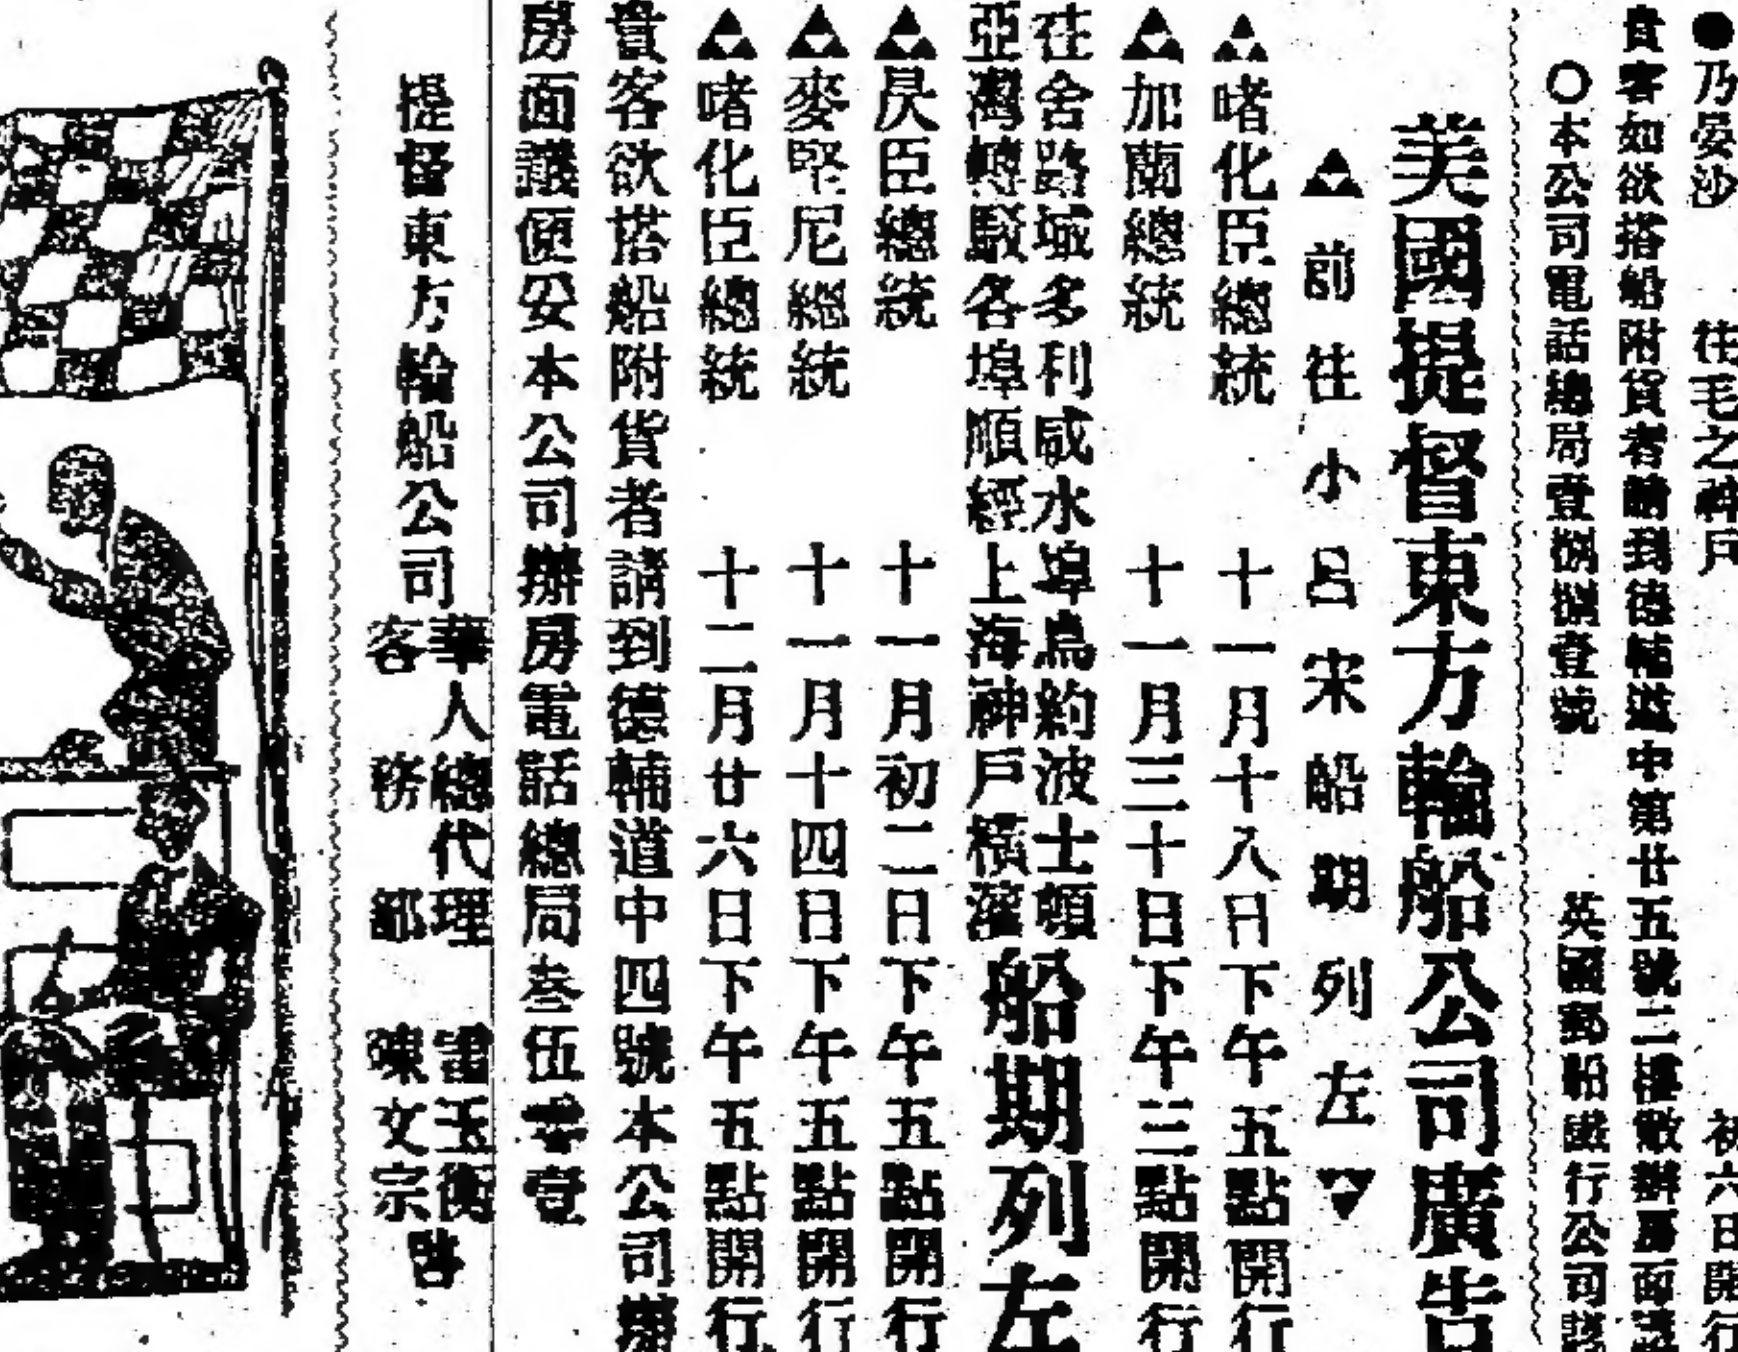 ●乃晏沙　往毛之神戶　初六日開行
貴客如欲搭船附貨者請到德輔道中第廿五號二樓敝辦房面議
〇本公司電話總局壹捌捌壹號　英國郵船鐵行公司啓
美國提督東方輪船公司廣告
▲前往小呂宋船期列左▼
▲啫化臣總統　十一月十八日下午五點開行
▲加蘭總統　十一月三十日下午三點開行
往舍路域多利咸水埠鳥約波士頓
亞灣轉駁各埠順經上海神戶橫濱
船期列左
▲昃臣總統　十一月初二日下午五點開行
▲麥堅尼總統　十一月十四日下午五點開行
▲啫化臣總統　十二月廿六日下午五點開行
貴客欲搭船附貨者請到德輔道中四號本公司辦
房面議便妥本公司辦房電話總局叁伍零壹
提督東方輪船公司
華人總代理　雷玉衡
客務部　陳文宗
啓